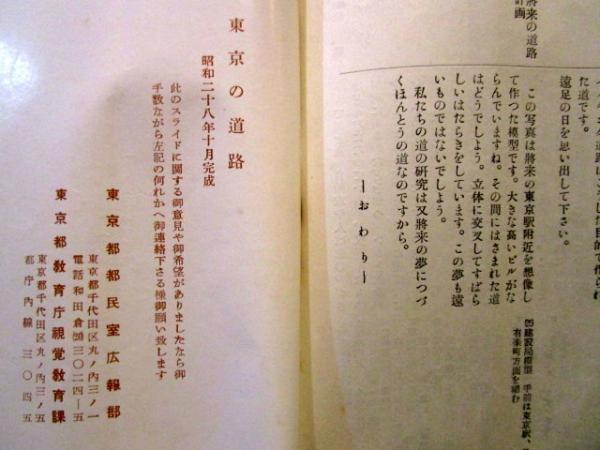 將来の道路
計画
た道です。
遠足の日を思い出して下さい。
この写真は將来の東京駅附近を想像し
て作つた模型です。大きな高いビルがな
らんでいますね。その間にはさまれた道
はどうでしよう。立体に交叉してすばら
しいはたらきをしています。この夢も遠
いものではないでしよう。
私たちの道の研究は又將来の夢につづ
くほんとうの道なのですから。
―おわり―
建設局模型 手前は東京駅、
有楽町方面を望む
東京の道路
昭和二十八年十月完成
此のスライドに関する御意見や御希望がありましたなら御
手数ながら左記の何れかへ御連絡下さる様御願い致します
東京都都民室広報部
東京都千代田区丸ノ内三ノ一
電話和田倉(20)三〇二四―五
東京都教育庁視覚教育課
東京都千代田区丸ノ内三ノ五
都庁内線 三〇四五